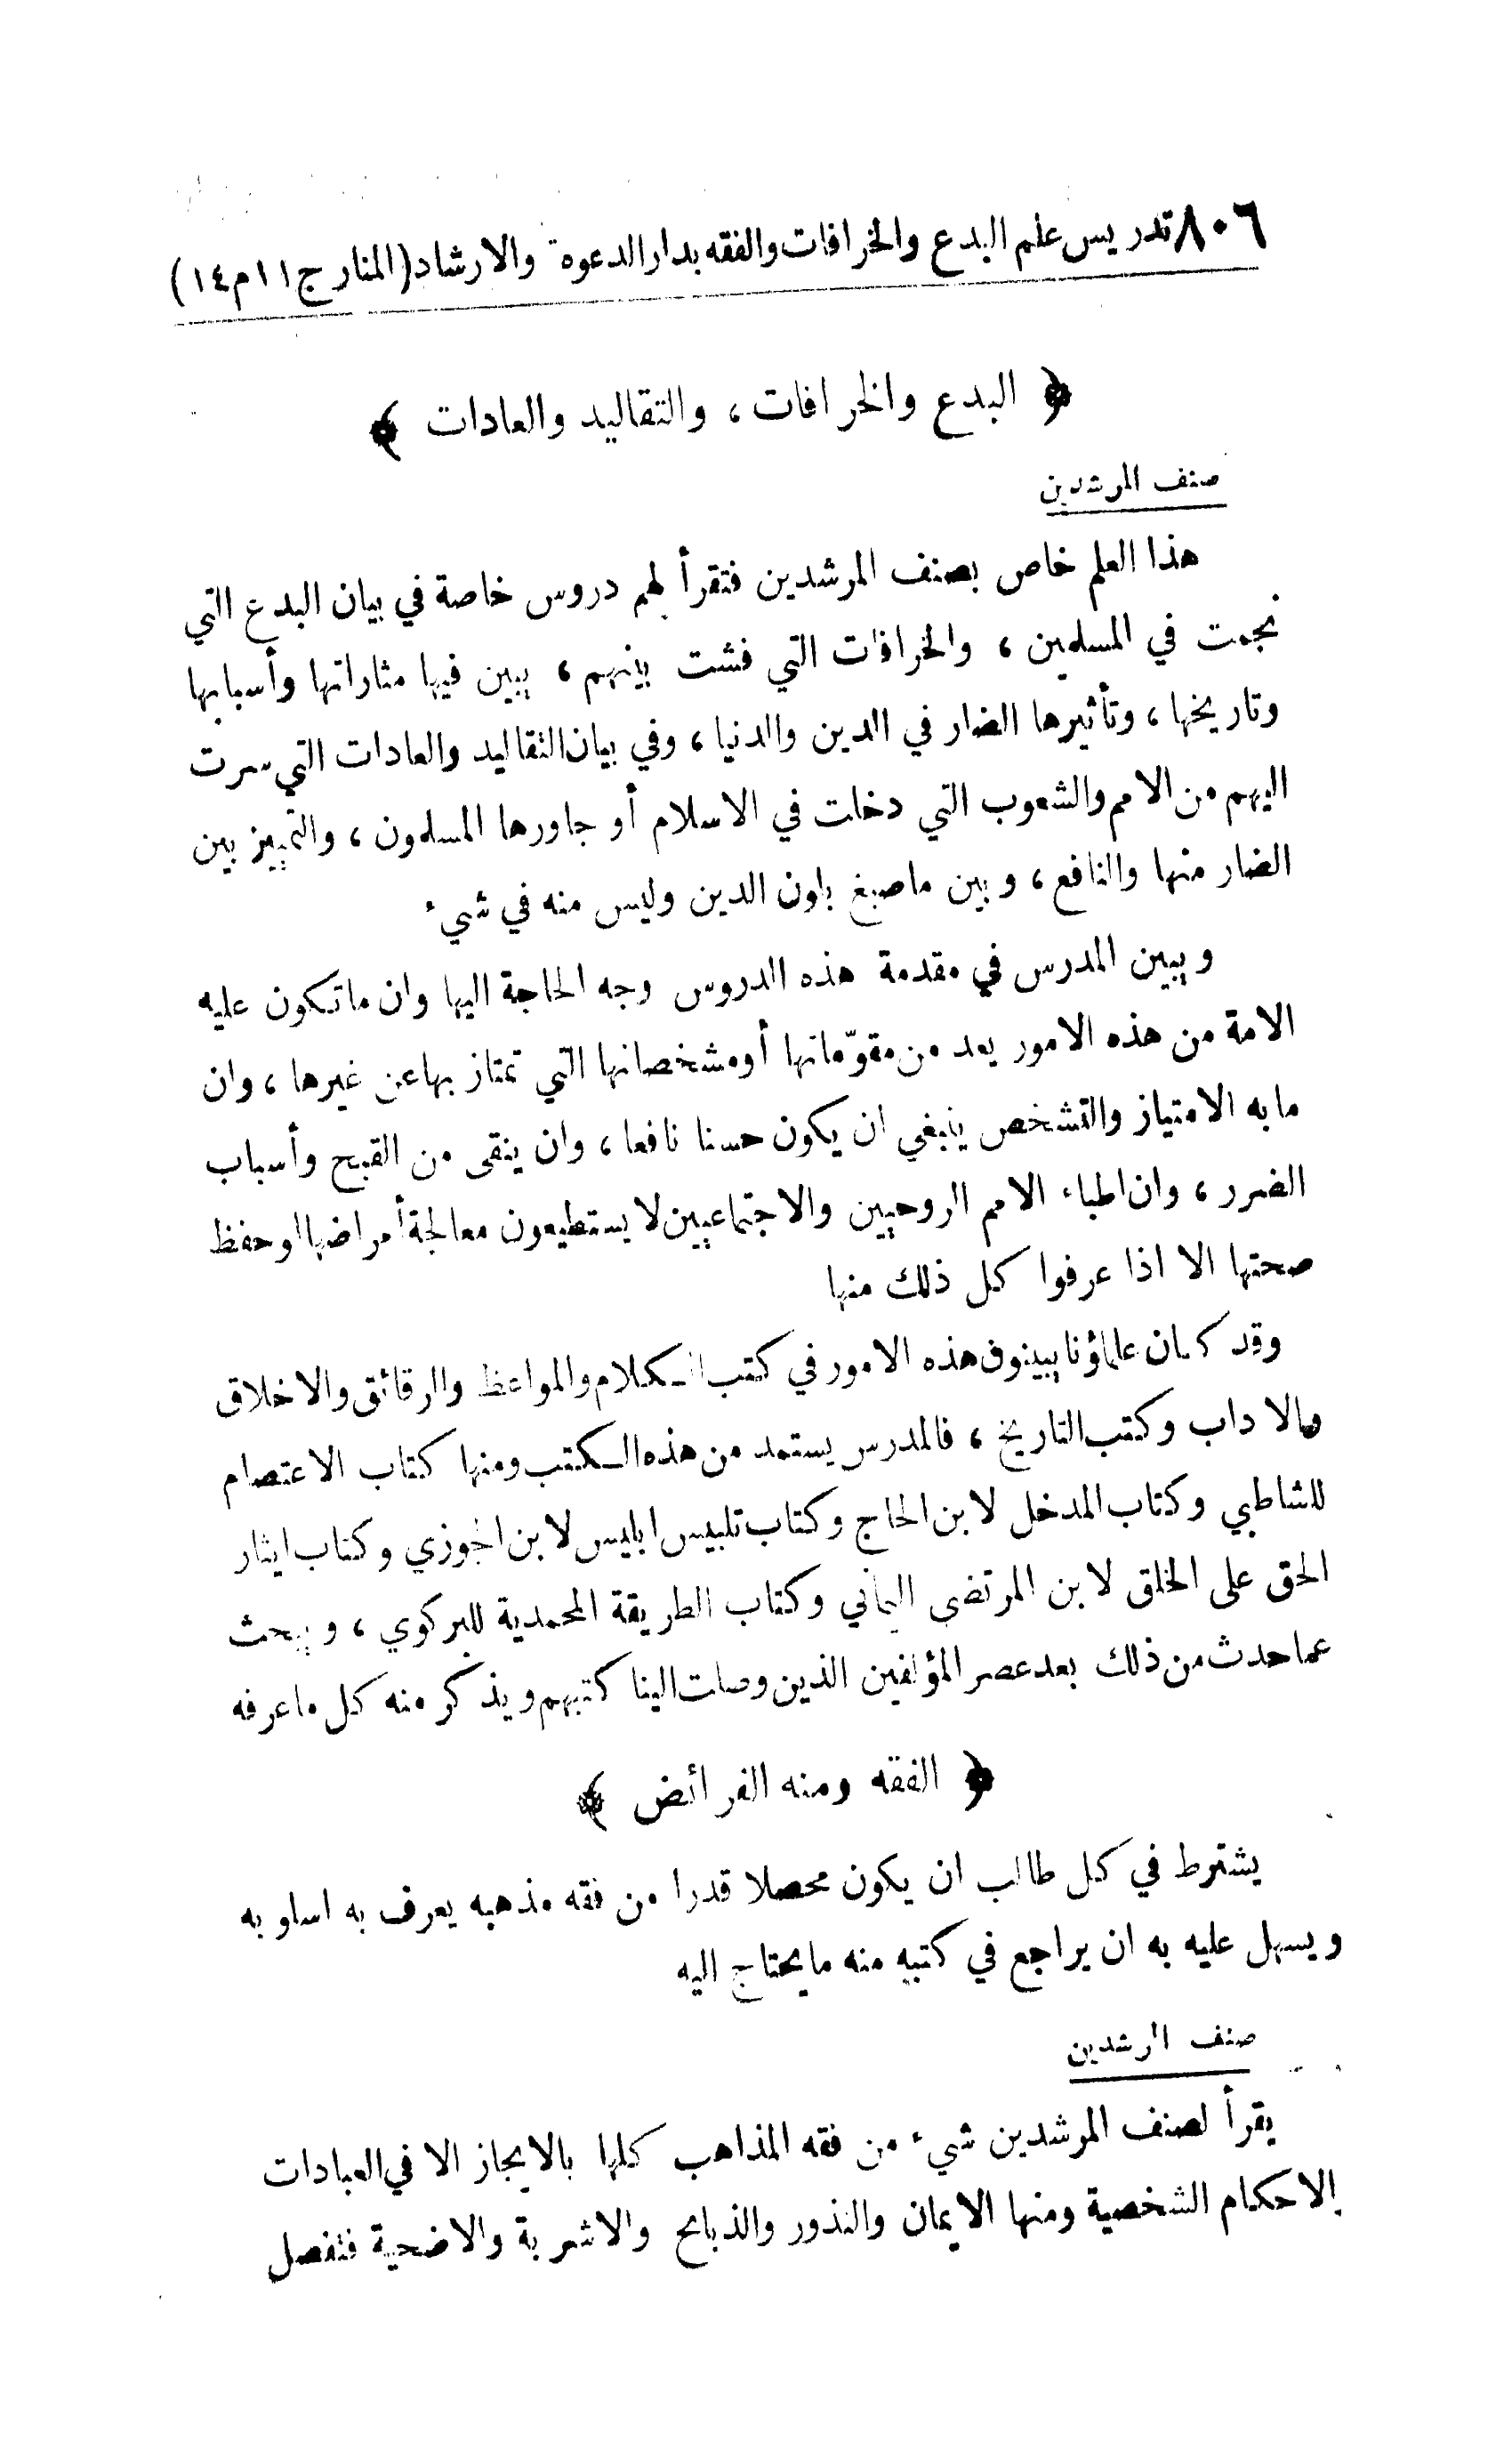 ٨٠٦ تدريس علم البدع والخرافات والفقه بدار الدعوة والارشاد (المنار ج ١١ م ١٤)
﴿ البدع والخرافات ، والتقاليد والعادات ﴾
صنف المرشدين
هذا العلم خاص بصنف المرشدين فتقرأ لهم دروس خاصة في بيان البدع التي
نجمت في المسلمين ، والخرافات التي فشت بينهم ، يبين فيها مثاراتها وأسبابها
وتاريخها ، وتأثيرها الضار في الدين والدنيا ، وفي بيان التقاليد والعادات التي سرت
اليهم من الامم والشعوب التي دخلت في الاسلام أو جاورها المسلمون ، والتمييز بين
الضار منها والنافع ، وبين ماصبغ بلون الدين وليس منه في شيء
ويبين المدرس في مقدمة هذه الدروس وجه الحاجة اليها وان ماتكون عليه
الامة من هذه الامور يعد من مقوّماتها أو مشخصاتها التي تمتاز بها عن غيرها ، وان
مابه الامتياز والتشخص ينبغي ان يكون حسنا نافعا ، وان ينقى من القبح وأسباب
الضرر ، وان اطباء الامم الروحيين والاجتماعيين لا يستطيعون معالجة أمراضها او حفظ
صحتها الا اذا عرفوا كل ذلك منها
وقد كان علماؤنا يبينون هذه الامور في كتب الكلام والمواعظ والرقائق والاخلاق
والآداب وكتب التاريخ ، فالمدرس يستمد من هذه الكتب ومنها كتاب الاعتصام
للشاطبي وكتاب المدخل لابن الحاج وكتاب تلبيس ابليس لابن الجوزي وكتاب ايثار
الحق على الخلق لابن المرتضى اليماني وكتاب الطريقة المحمدية للبركوي ، ويبحث
عما حدث من ذلك بعد عصر المؤلفين الذين وصلت الينا كتبهم ويذكر منه كل ماعرفه
﴿ الفقه ومنه الفرائض ﴾
يشترط في كل طالب ان يكون محصلا قدرا من فقه مذهبه يعرف به اسلوبه
ويسهل عليه به ان يراجع في كتبه منه مايحتاج اليه
صنف المرشدين
يقرأ لصنف المرشدين شيء من فقه المذاهب كلها بالايجاز الا في العبادات
والاحكام الشخصية ومنها الايمان والنذور والذبائح والاشربة والاضحية فتفصل